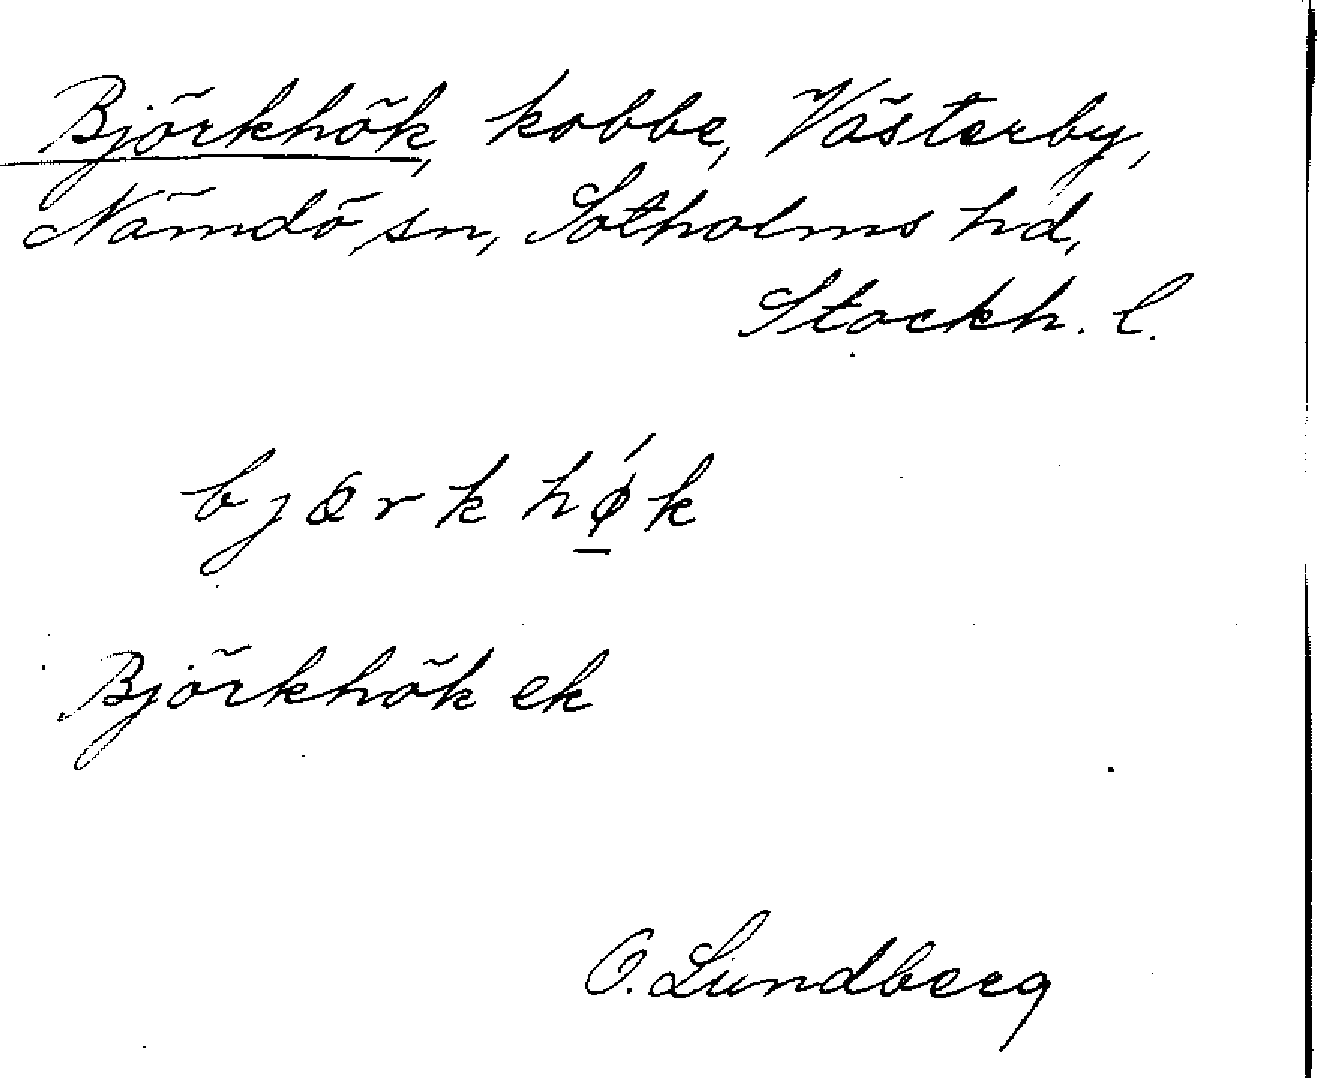 Björkhök, kobbe, Västerby,
Nämdö sn, Sotholms hd,
Stockh. l.
bjœrkhǿ̱k
Björkhök ek
O. Lundberg